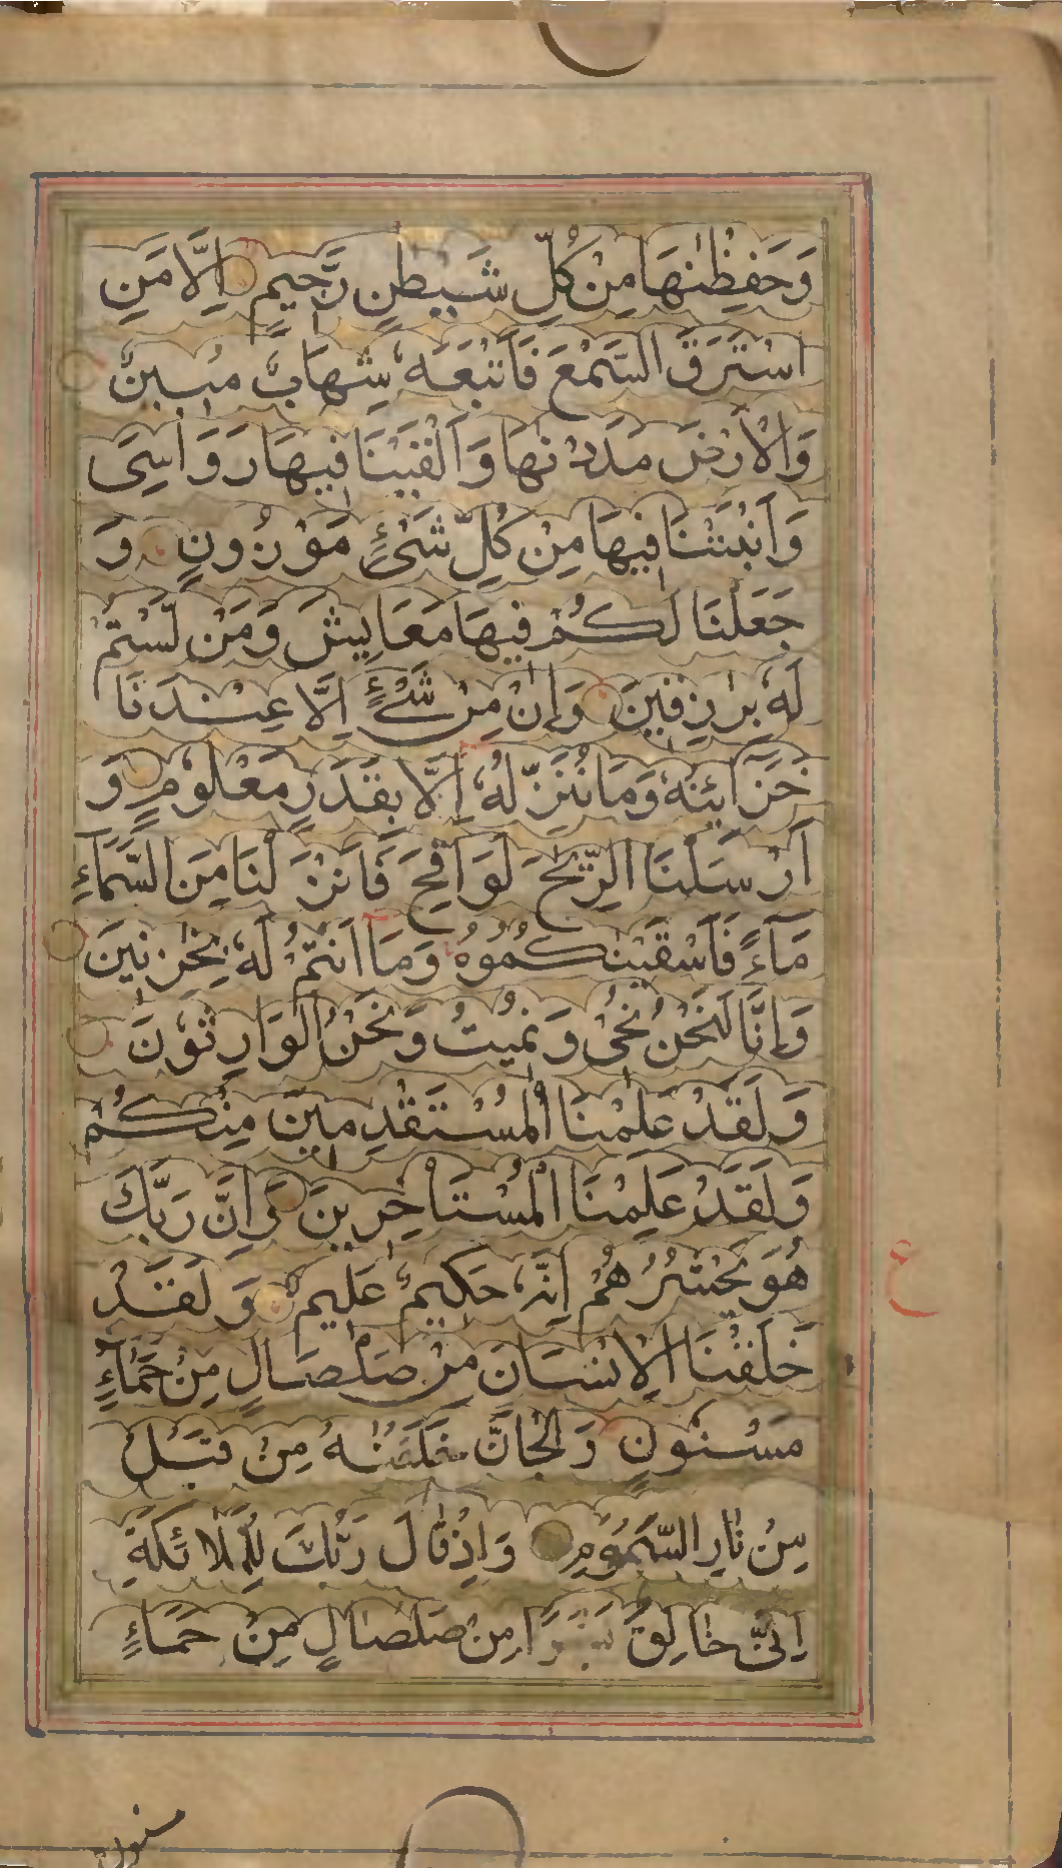 وَحَفِظْنٰهَا مِنْ كُلِّ شَيْطٰنٍ رَّجِيْمٍ اِلَّا مَنِ
اسْتَرَقَ السَّمْعَ فَاَتْبَعَهٗ شِهَابٌ مُّبِيْنٌ
وَالْاَرْضَ مَدَدْنٰهَا وَاَلْقَيْنَا فِيْهَا رَوَاسِىَ
وَاَنْبَتْنَا فِيْهَا مِنْ كُلِّ شَىْءٍ مَّوْزُوْنٍ وَ
جَعَلْنَا لَكُمْ فِيْهَا مَعَايِشَ وَمَنْ لَّسْتُمْ
لَهٗ بِرٰزِقِيْنَ وَاِنْ مِّنْ شَىْءٍ اِلَّا عِنْدَنَا
خَزَآئِنُهٗ وَمَا نُنَزِّلُهٗ اِلَّا بِقَدَرٍ مَّعْلُوْمٍ وَ
اَرْسَلْنَا الرِّيٰحَ لَوَاقِحَ فَاَنْزَلْنَا مِنَ السَّمَآءِ
مَآءً فَاَسْقَيْنٰكُمُوْهُ وَمَا اَنْتُمْ لَهٗ بِخٰزِنِيْنَ
وَاِنَّا لَنَحْنُ نُحْىٖ وَنُمِيْتُ وَنَحْنُ الْوَارِثُوْنَ
وَلَقَدْ عَلِمْنَا الْمُسْتَقْدِمِيْنَ مِنْكُمْ
وَلَقَدْ عَلِمْنَا الْمُسْتَاْخِرِيْنَ وَاِنَّ رَبَّكَ
هُوَ يَحْشُرُهُمْ اِنَّهٗ حَكِيْمٌ عَلِيْمٌ وَلَقَدْ
خَلَقْنَا الْاِنْسَانَ مِنْ صَلْصَالٍ مِّنْ حَمَاءٍ
مَّسْنُوْنٍ وَالْجَانَّ خَلَقْنٰهُ مِنْ قَبْلُ
مِنْ نَارِ السَّمُوْمِ وَاِذْ قَالَ رَبُّكَ لِلْمَلَائِكَةِ
اِنِّىْ خَالِقٌ بَشَرًا مِنْ صَلْصَالٍ مِنْ حَمَاءٍ
ع
مسنون